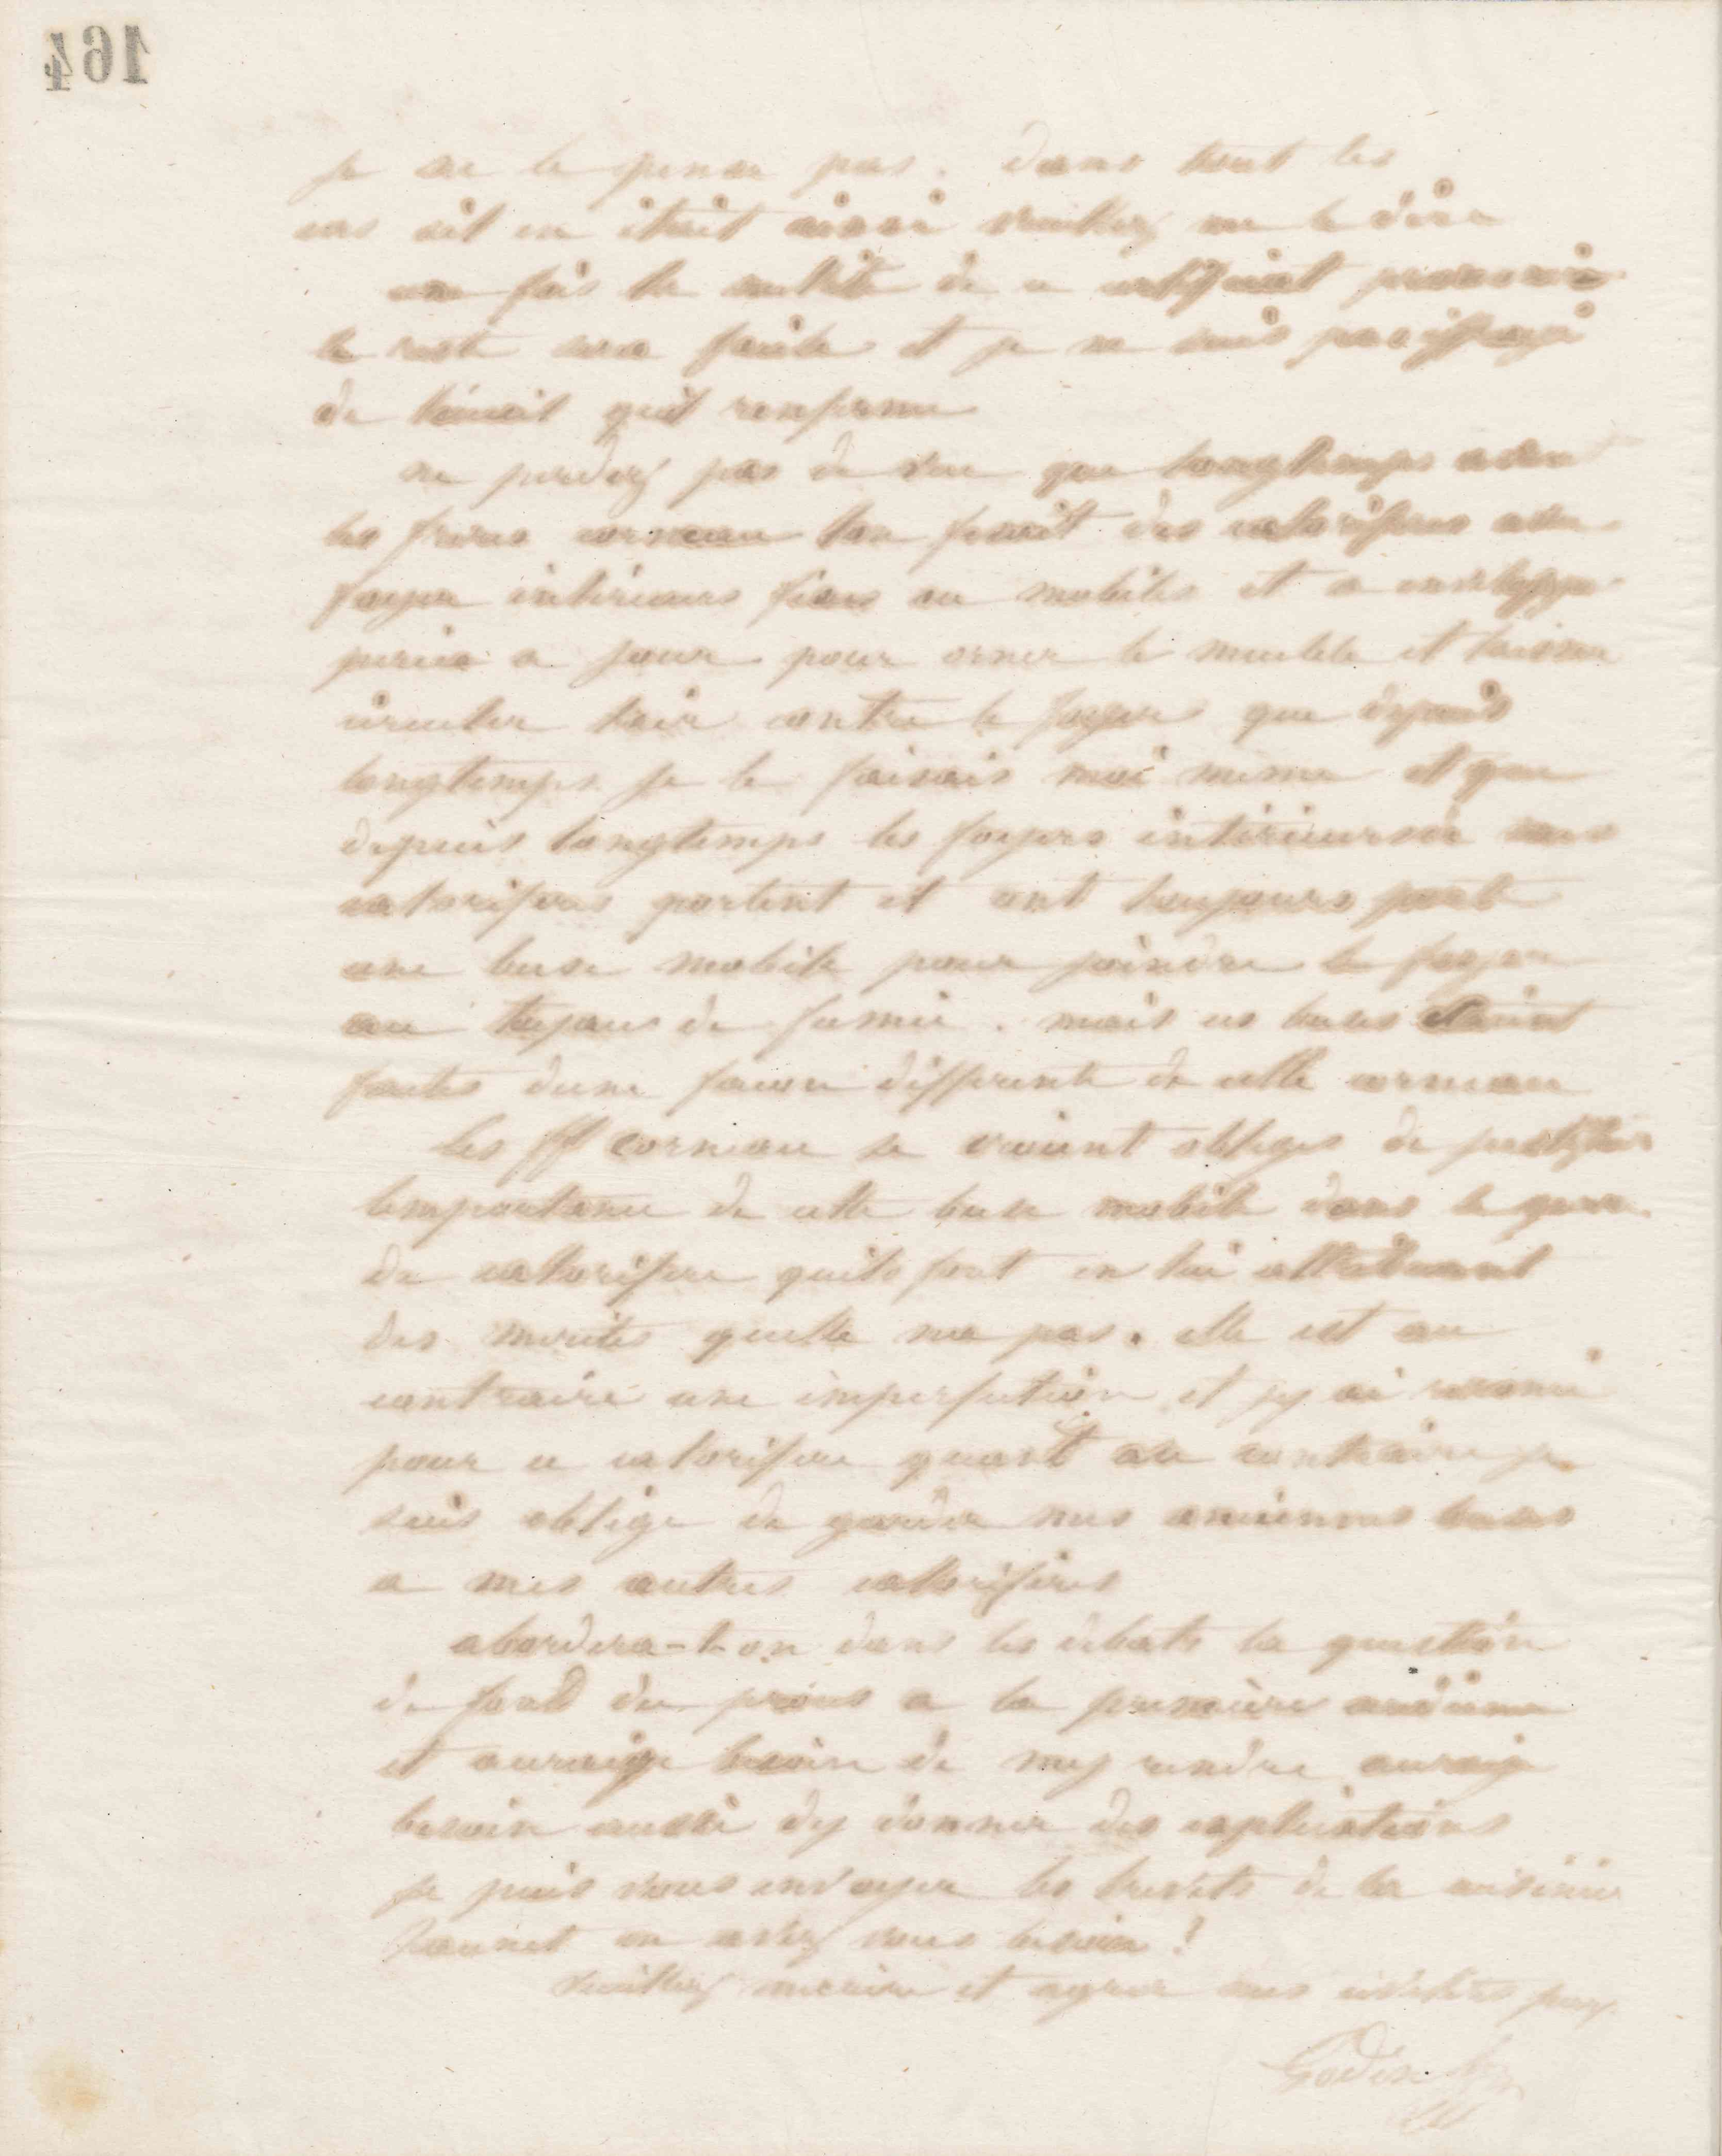 164
je ne le pense pas. dans tout les
cas sit en était ainsi veuillez me le dire
une fois la nullité de ce certificat prononcée
le reste sera facile et je ne suis pas effrayé
de qu'il renferme
ne perdez pas de vue que longtemps avan
les frères corneau lon fesait des calorifères avec
foyer intérieurs fixes ou mobiles et a enveloppe
percée a jour pour orner le meuble et laisser
circuler lair contre le foyer que depuis
longtemps je le faisais moi meme et que
depuis longtemps les foyers intérieurs de mes
calorifères portent et ont toujours porté
une buse mobile pour joindre le foyer
au tuyaus de fumée. mais ces buses étaient
faites dune facon differente de celle corneau
les ff corneau se voient obliges de justifier
limportance de cette buse mobile dans le genre
de calorifère quils font en lui attribuant
des merites quelle na pas. elle est au
contraire une imperfection et jy ai renoncé
pour ce calorifère quant au contraire je
suis obligé de garder mes anciennes buses
a mes autres calorifères
abordera-t-on dans les débats la question
de fond du procès a la première audience
et auraije besoin de my rendre auraije
besoin aussi dy donner des explications
je puis vous envoyer les brevets de la cuisinière
en avez vous besoin?
veuillez mecrire et agreer mes civilités
Godin